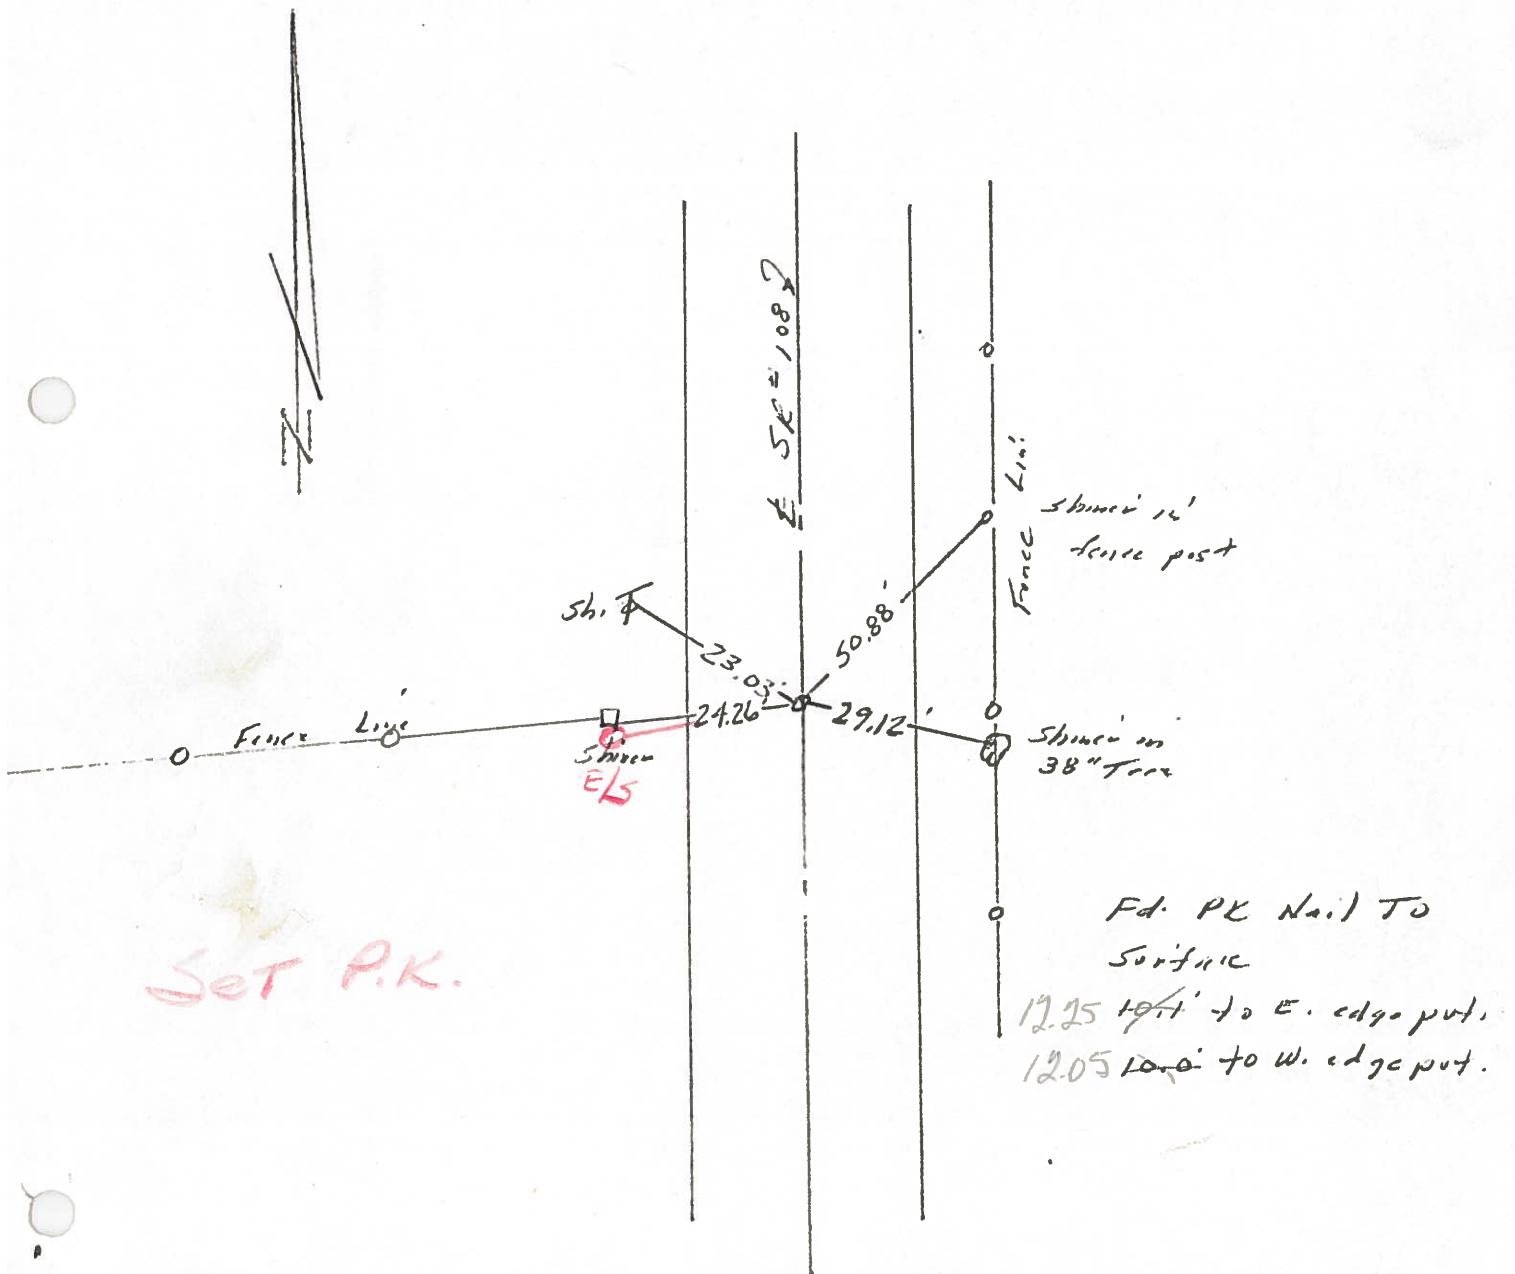 N
℄ SR = 108
Fence Line
Shiner in
fence post
Sh.
50.88'
23.03'
24.26'
29.12'
Fence Line
Shiner
E/S
Shiner in
38" Tree
Fd. PK Nail To
Surface
12.25 10.1' to E. edge pvt.
12.05 10.0' to W. edge pvt.
Set P.K.